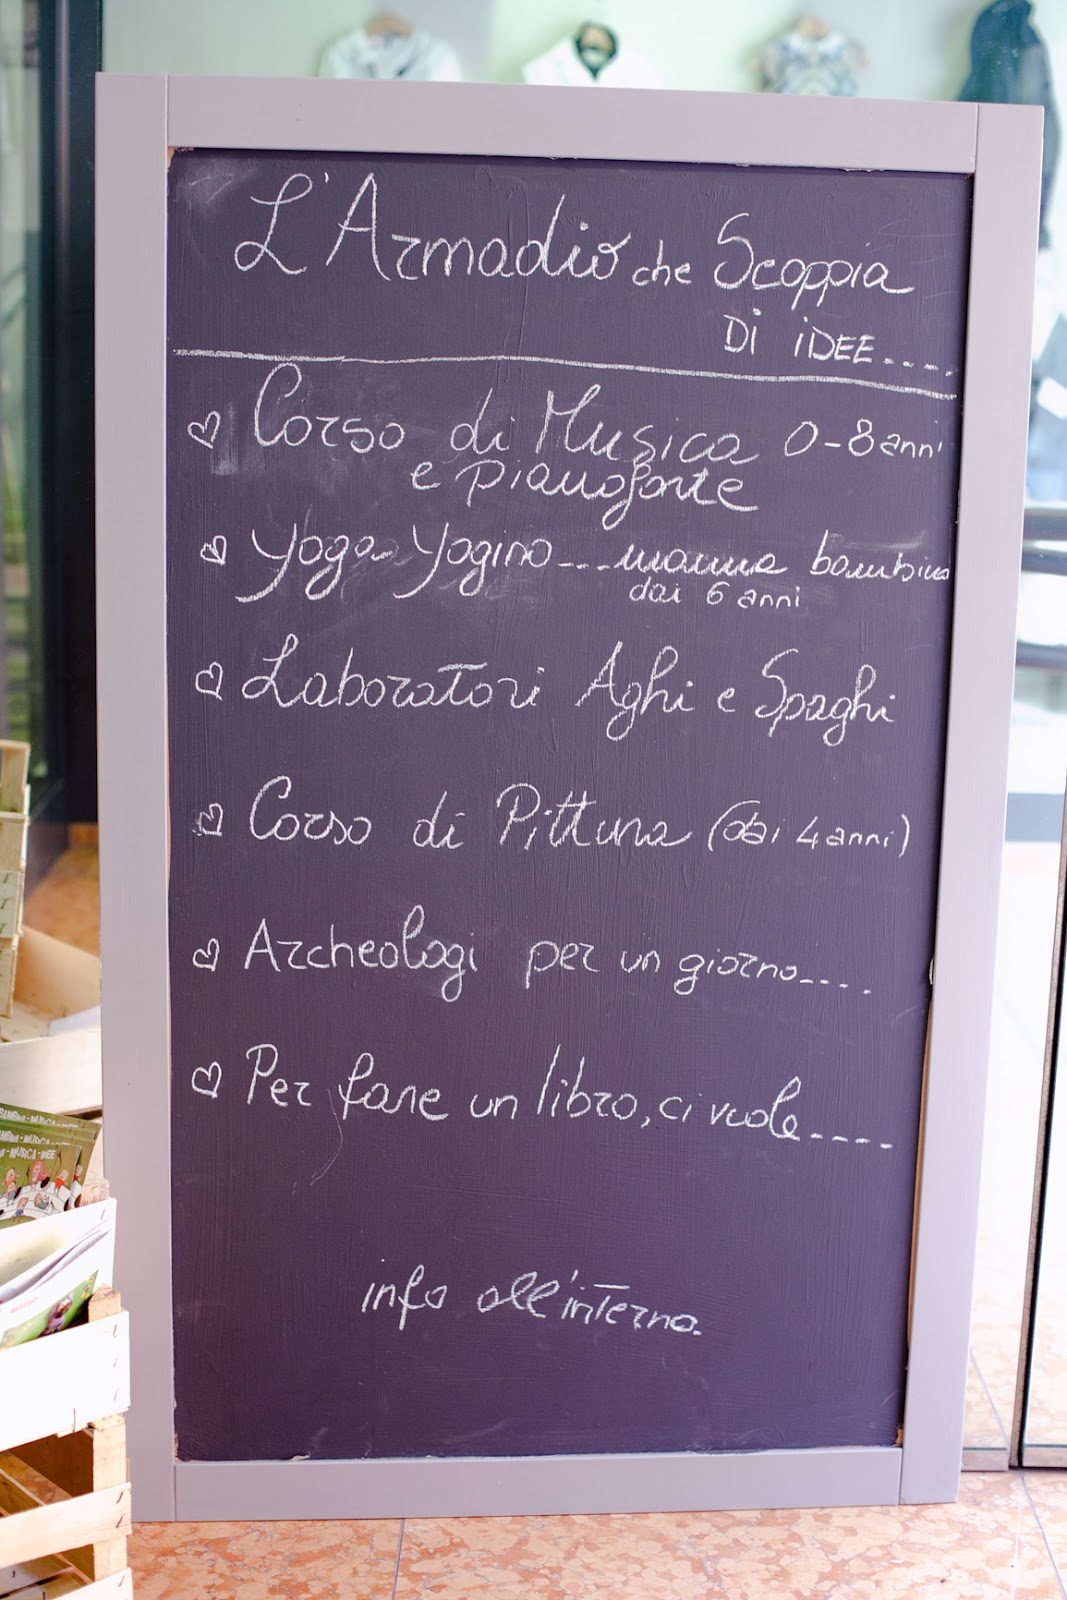 L'Armadio che Scoppia
Di iDEE.....
Corso di Musica 0-8 anni
e pianoforte
Yoga Yogino....mamma bambino
dai 6 anni
Laboratori Aghi e Spaghi
Corso di Pittura (dai 4 anni)
Archeologi per un giorno....
Per fare un libro, ci vuole.....
info all'interno.
- MUSICA - IDEE